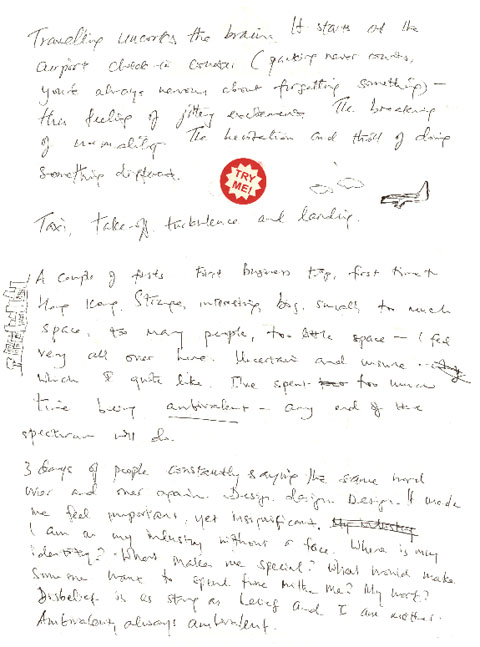 Travelling uncorks the brain. It starts at the
airport check-in counter (packing never counts,
you're always nervous about forgetting something) —
this feeling of jittery excitement. The breaking
of normality. The hesitation and thrill of doing
something different.
TRY
ME!
Taxi, take-off, turbulence and landing.
A couple of firsts. First business trip, first time to
Hong Kong. Strange, interesting, big, small, too much
space, too many people, too little space — I feel
very all over here. Uncertain and unsure
which I quite like. I've spent too much
time being ambivalent — any end of the
spectrum will do.
3 days of people constantly saying the same word
over and over again. Design. design. Design. It made
me feel important, yet insignificant,
I am in my industry without a face. Where is my
identity? What makes me special? What would make
someone want to spend time with me? My work?
Disbelief is as strong as being and I am neither.
Ambivalent, always ambivalent.